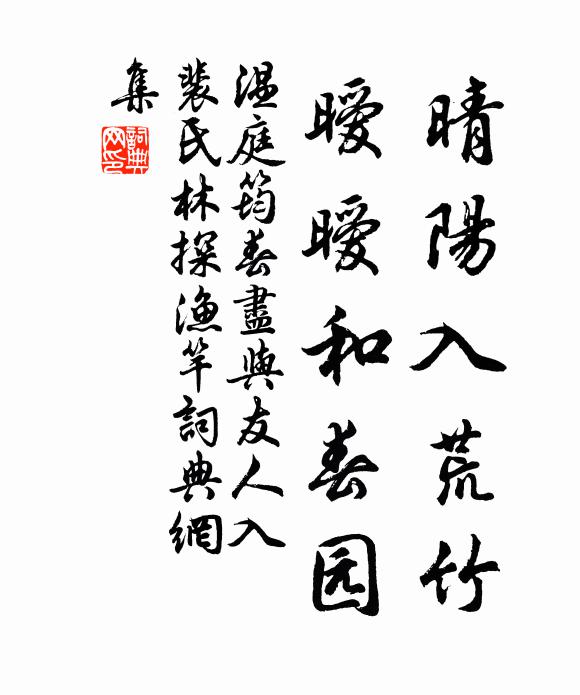 晴陽入荒竹
曖曖和春园
温庭筠春盡與友人入
裴氏林探漁竿詞典網
集
詞典網印